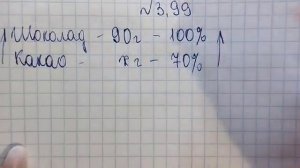 №3,99
Шоколад - 90г - 100%
Какао - хг - 70%